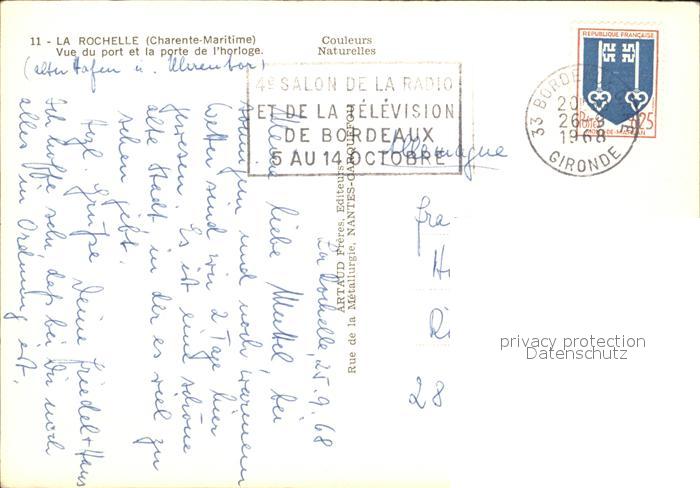 11 - LA ROCHELLE (Charente-Maritime)
Vue du port et la porte de l'horloge.
Couleurs
Naturelles
(alter Hafen u. Uhrentor)
4e SALON DE LA RADIO
ET DE LA TÉLÉVISION
DE BORDEAUX
5 AU 14 OCTOBRE
33 BORDE
20
26 - 9
1968
GIRONDE
REPUBLIQUE FRANÇAISE
Postes
0,25
MONT-DE-MARSAN
Allemagne
ARTAUD Frères, Editeurs
Rue de la Métallurgie, NANTES-CARQUEFOU
La Rochelle, 25.9.68
Meine liebe, bei
sonnigem und noch warmem
Wetter sind wir 2 Tage hier
gewesen. Es ist eine schöne
alte Stadt in der es viel zu
sehen gibt.
Herzl. Grüße Deine Friedel + Hans
Ich hoffe sehr, daß bei Dir noch
alles in Ordnung ist.
Fra
H
Ri
28
privacy protection
Datenschutz